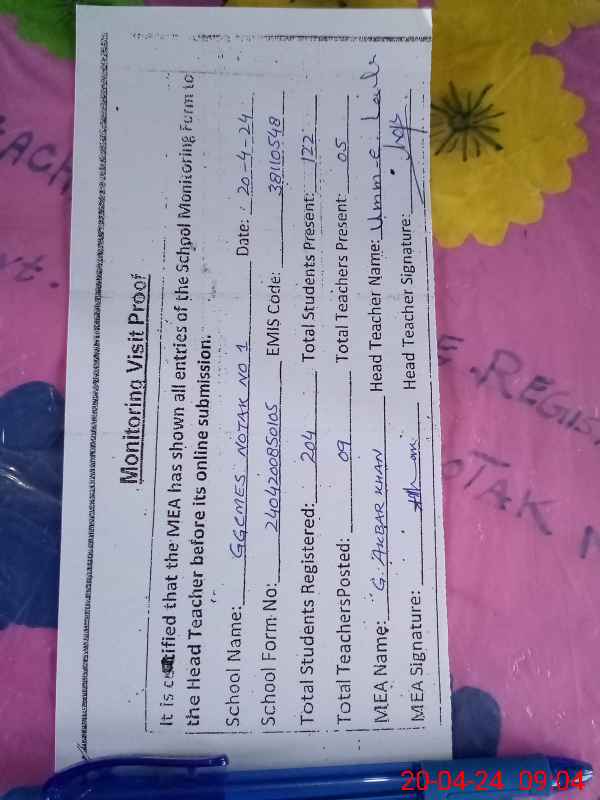 Monitoring Visit Proof
It is certified that the MEA has shown all entries of the School Monitoring Form to
the Head Teacher before its online submission.
School Name: GGCMES NOTAK NO 1 Date: 20-4-24
School Form No: 2404200850105 EMIS Code: 38110548
Total Students Registered: 204 Total Students Present: 122
Total TeachersPosted: 09 Total Teachers Present: 05
MEA Name: G. AKBAR KHAN Head Teacher Name: Umm-e-Laila
MEA Signature: Head Teacher Signature:
EACH
REGIS
OTAK N
20-04-24 09:04